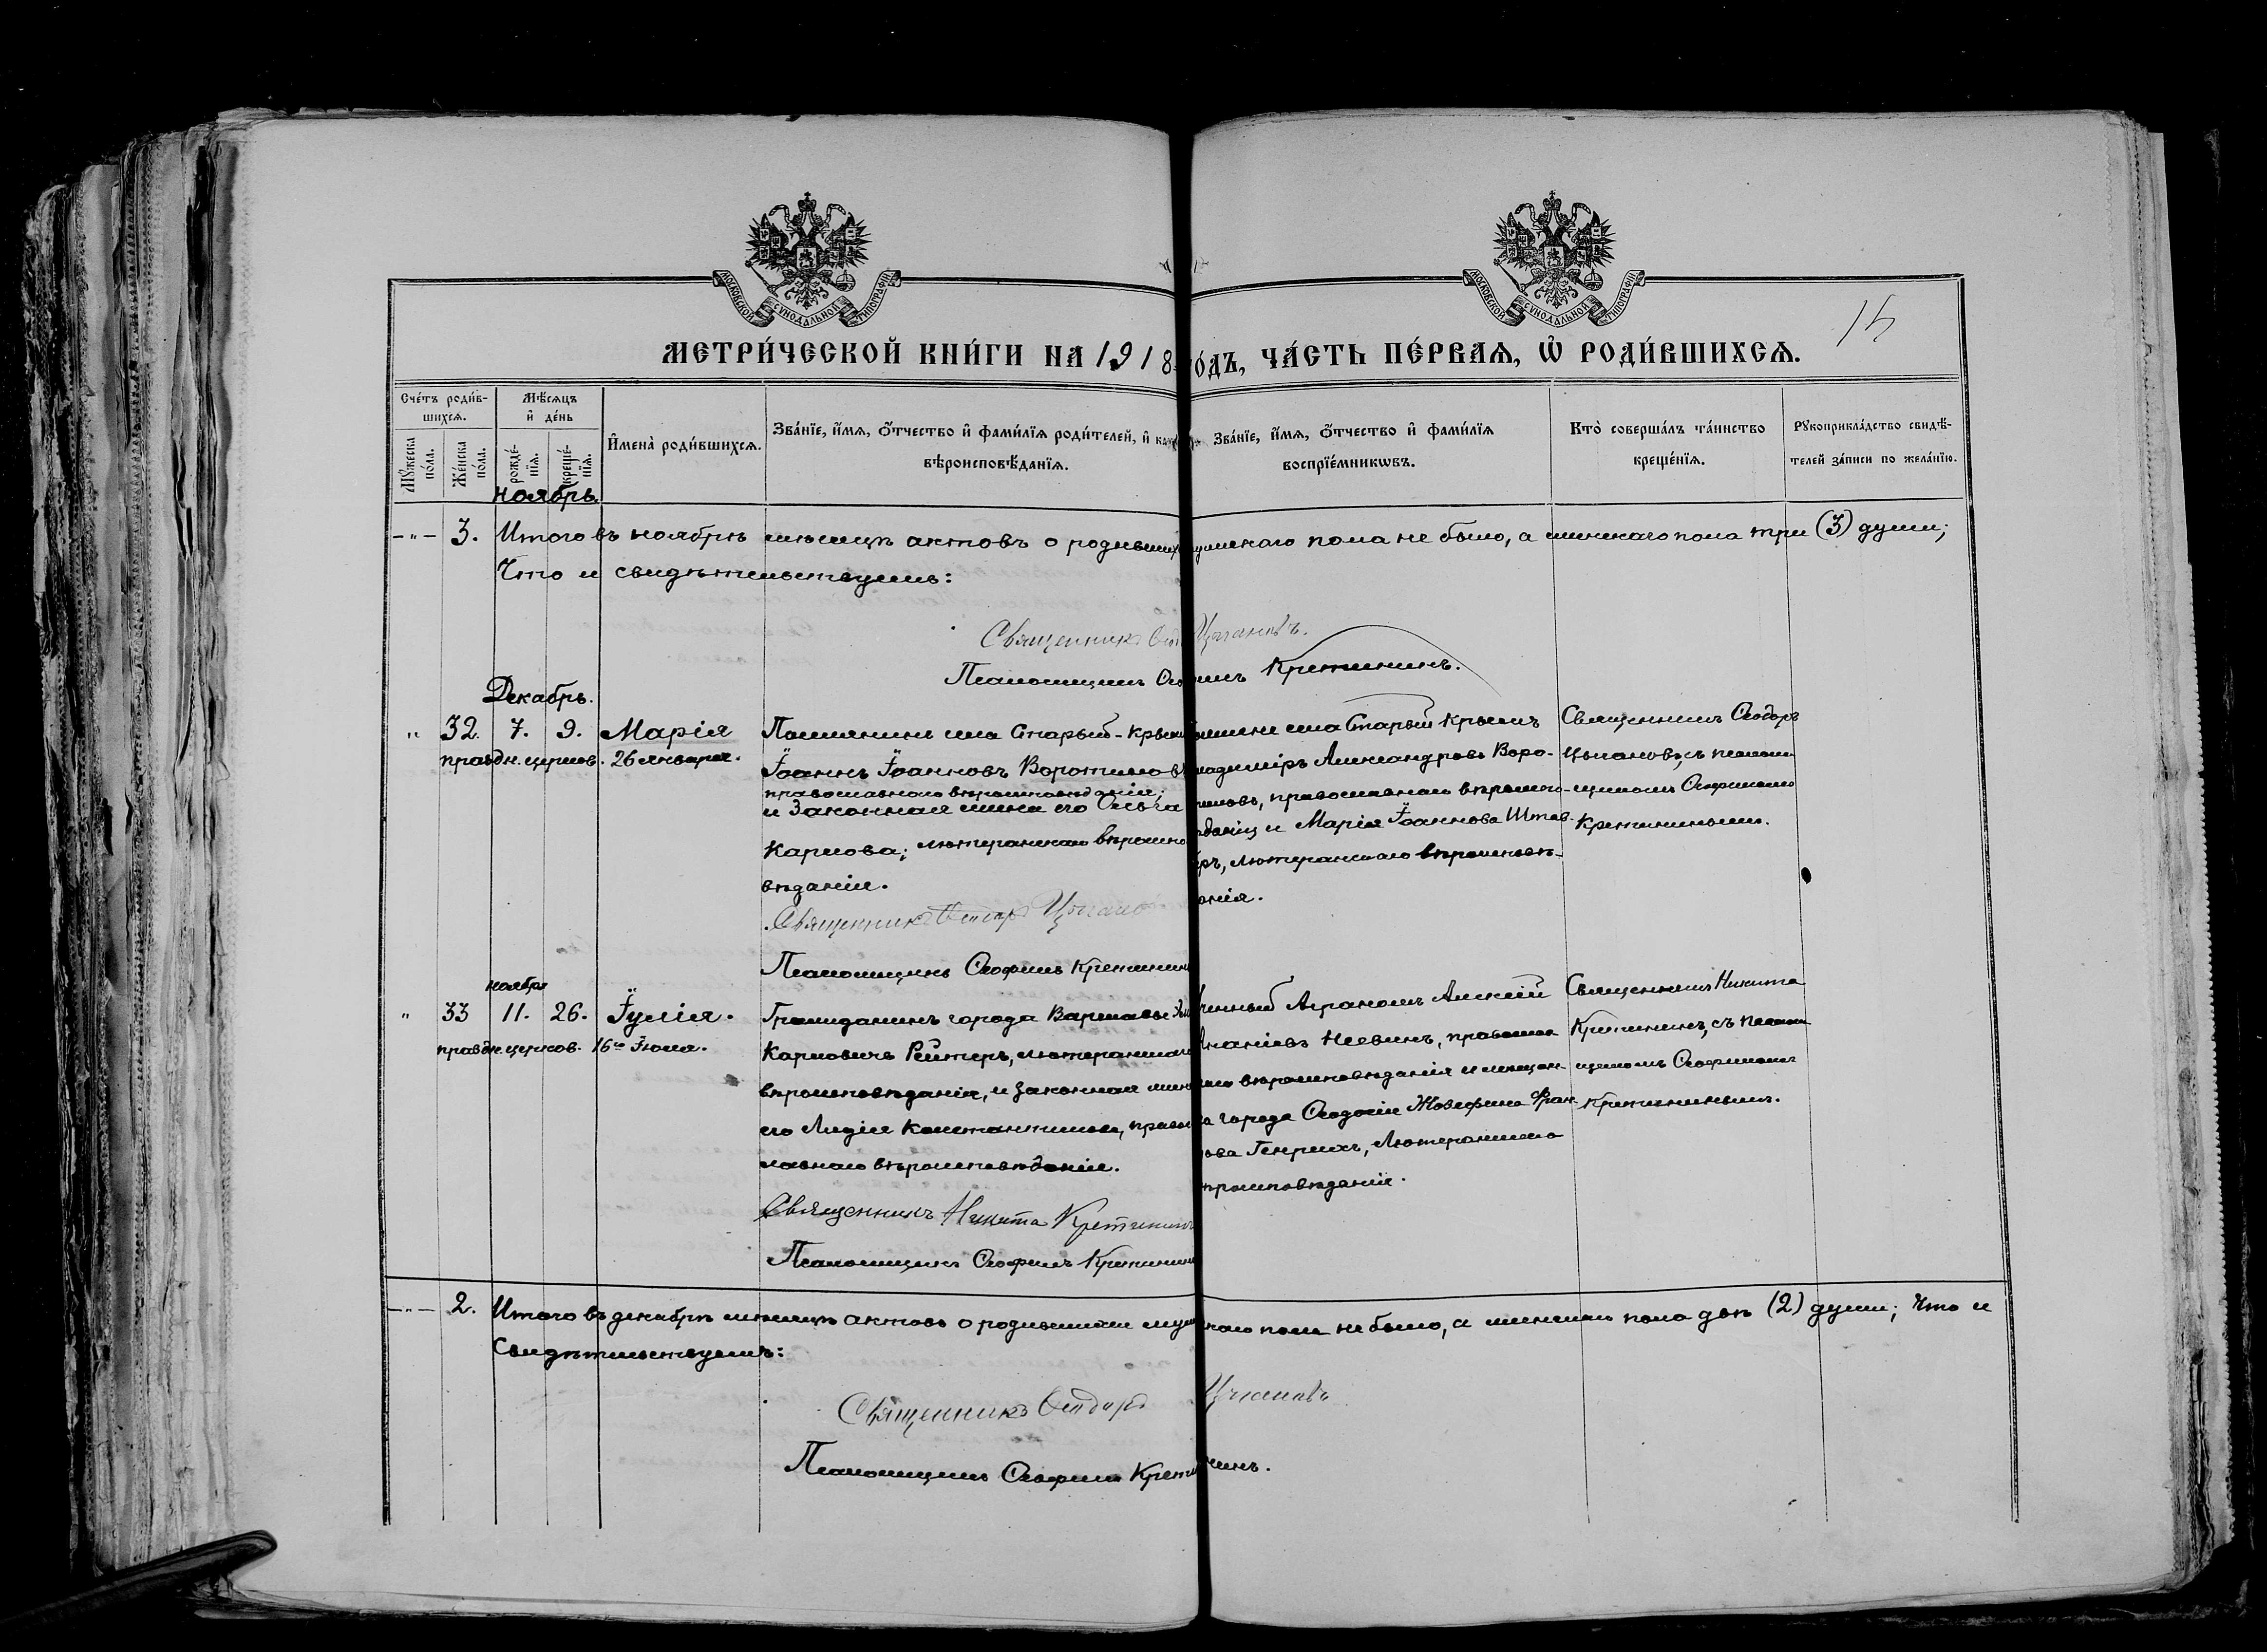 МОСКОВСКОЙ СУНОДАЛЬНОЙ ТИПОГРАФІИ
МОСКОВСКОЙ СУНОДАЛЬНОЙ ТИПОГРАФІИ
15
МЕТРИ́ЧЕСКОЙ КНИ́ГИ НА 1918 го́дъ, ЧА́СТЬ ПЕ́РВАѦ, Ѽ РОДИ́ВШИХСѦ.
Сче́тъ роди́в-
шихсѧ.
Мꙋ́жеска по́ла.
Же́нска по́ла.
Мѣ́сѧцъ
и҆ де́нь
рожде́-
нїѧ.
креще́-
нїѧ.
И҆мена̀ роди́вшихсѧ.
Зва́нїе, и҆́мѧ, ѻ҆́тчество и҆ фами́лїѧ роди́телей, и҆ как
вѣроисповѣ́данїѧ.
Зва́нїе, и҆́мѧ, ѻ҆́тчество и҆ фами́лїѧ
воспрїе́мникωвъ.
Кто̀ соверша́лъ та́инство
креще́нїѧ.
Рꙋкоприкла́дство свидѣ́-
телей за́писи по жела́нїю.
ноябрь.
-"- 3. Итого въ ноябрѣ мѣсяцѣ актовъ о родившихъ мужского пола не было, а женскаго пола три (3) души;
Что и свидѣтельствуемъ:
Священникъ Цыгановъ.
Псаломщикъ Кретининъ.
Декабрь.
" 32. 7. 9. Марія
праздн. церков. 26 января.
Поселянинъ села Старый-Крымъ
Іоаннъ Іоанновъ Воротиловъ
православнаго вѣроисповѣданія;
и Законная жена его Ольга
Карлова; лютеранскаго вѣроиспо
вѣданія.
Священникъ Ѳеодоръ Цыгано
Псаломщикъ Ѳеофилъ Кретинин
села Старый Крымъ
Владиміръ Александровъ Воро-
тиловъ, православнаго вѣроиспо-
вѣданія и Марія Іоаннова Штав-
ръ, лютеранскаго вѣроисповѣ-
данія.
Священникъ Ѳеодоръ
Цыгановъ, съ псалом-
щикомъ Ѳеофиломъ
Кретининымъ.
ноября
" 33 11. 26. Іулія.
праздн. церков. 16го Іюля.
Гражданинъ города Варшавы
Карловичъ Рейтеръ, лютеранскаго
вѣроисповѣданія, и законная жена
его Лидія Константинова, право
славнаго вѣроисповѣданія.
Священникъ Никита Кретининъ
Псаломщикъ Ѳеофилъ Кретинин
Ученный Агрономъ Алексій
Ананіевъ Неевинъ, правосла
внаго вѣроисповѣданія и мещан-
ка города Ѳеодосіи Жозефина Фран-
цова Генрихъ, Лютеранскаго
вѣроисповѣданія.
Священникъ Никита
Кретининъ, съ псалом
щикомъ Ѳеофиломъ
Кретининымъ.
-"- 2. Итого въ декабрѣ мѣсяцѣ актовъ о родившихся мужскаго пола не было, а женскаго пола двѣ (2) души; Что и
Свидѣтельствуемъ:
Священникъ Ѳеодоръ Цыгановъ
Псаломщикъ Ѳеофилъ Кретининъ.